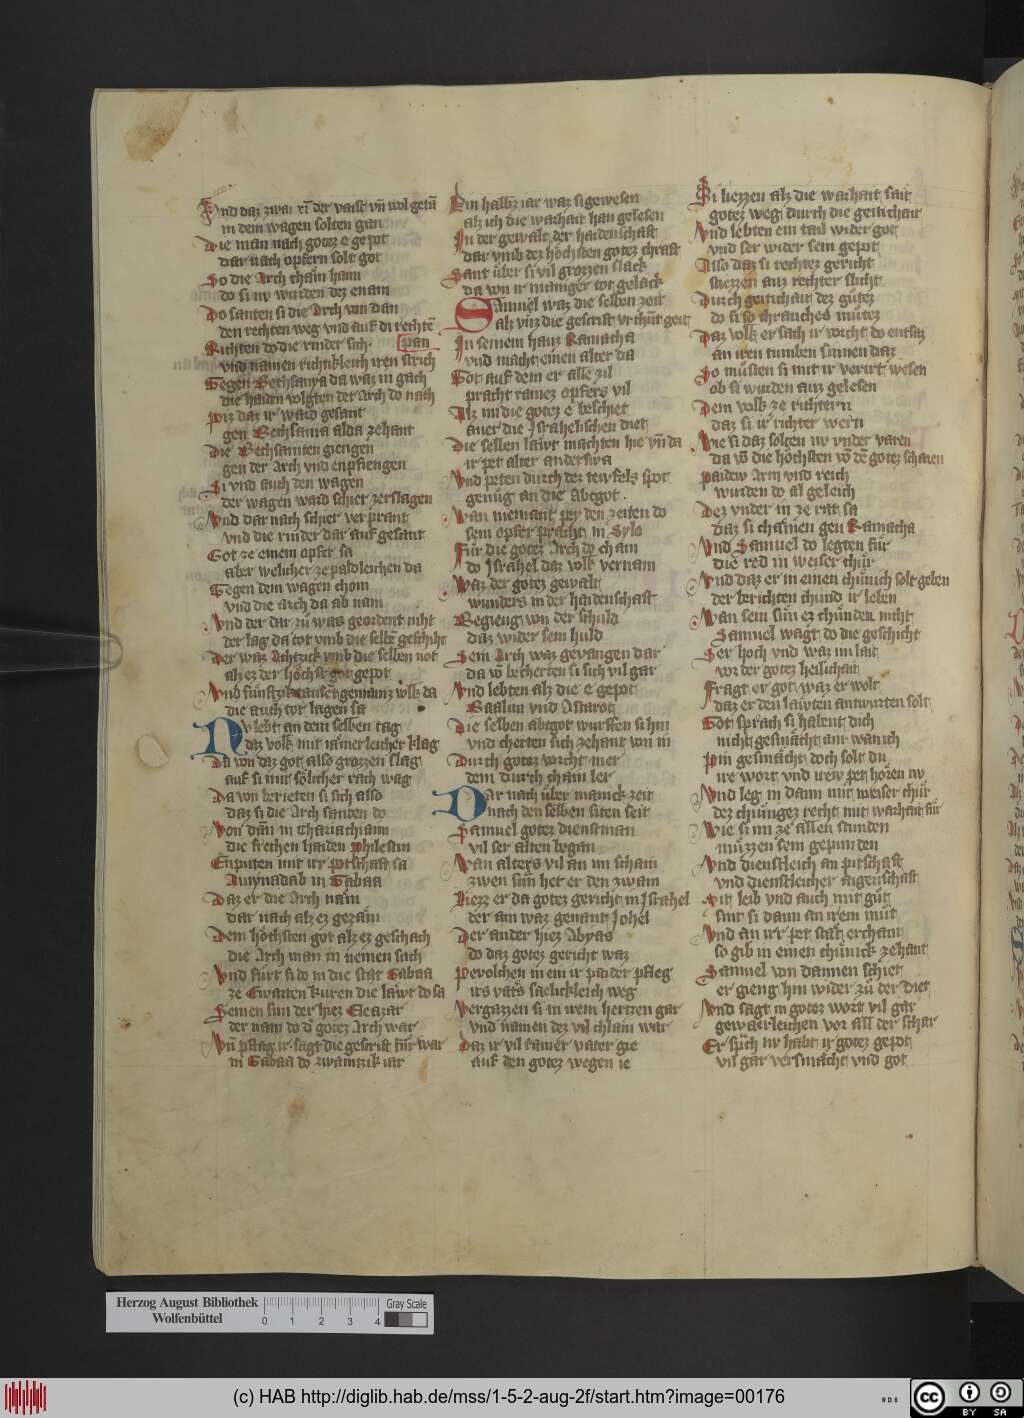 Vnd daz zwai ri der vaist vn wol getan
in dem wagen solten gan
Die man nach gotez e gepot
dar nach opfern solt got
So die Arch cham haim
do si nv wurden dez enain
Do santen si die Arch von dan
den rechten weg vnd auf di rechte
pan
Richten do die rinder sich
vnd namen richtikleich iren strich
Gegen Bethsamya da waz in gach
die haiden volgten der Arch do nach
piz daz ir ward gesant
gen Bethsamia alda zehant
Die Bethsamiten giengen
gen der Arch vnd enpfiengen
Si vnd auch den wagen
der wagen ward schier zerslagen
Vnd dar nach schier verprant
vnd die rinder dar auf gesant
Got ze einem opfer sa
aber welicher ze paldleichen da
Gegen dem wagen chom
vnd die arch da ab nam
Vnd der dar zu was geordent niht
der lag da tot vmb die selbe geschiht
Der waz Achtzick vmb die selben not
alz ez der höchst got gepot
Vnd fünftzik tausent gemainz volk da
die auch tot lagen sa
Nv lebt an dem selben tag
daz volk mit iamerleicher klag
Da von daz got also grozzen slag
auf si mit sölicher rach wag
Da von berieten si sich also
daz si die Arch santen do
Von dan in Thariachiam
die frechen haiden philestim
Enputen mit irr potschaft sa
Amynadab in Gabaa
Daz er die Arch näm
dar nach alz ez gezäm
Dem höchsten got alz ez geschach
die Arch man in nemen sach
Vnd fürt si do in die stat Gabaa
ze Ewarten kuren die läwt do sa
Seinen sun der hiez Eleazar
der nam do d gotez Arch war
Vn pflag ir sagt die gescrift für war
in Gabaa do zwaintzik iar
Ein halbz iar waz si gewesen
alz ich die warhait han gelesen
In der gewalt der haidenschaft
dar vmb dez höchsten gotez chraft
Sant über si vil grozzen slack
da von ir maniger tot gelack
Samuel waz die selben zeit
alz vnz die gescrift vrchünt geit
In seinem hauz Ramacha
vnd macht einen alter da
Got auf dem er alle zil
pracht rainez opfers vil
Alz im die gotez e beschiet
auer die Israhelischen diet
Die selben läwt machten hie vn da
ir pet alter anderswa
Vnd peten durch dez tewfels spot
genüg an die Abtgot.
Wan niemant pey den zeiten do
sein opfer pracht in Sylo
Für die gotez Arch do cham
do Israhel daz volk vernam
Waz der gotez gewalt
wunders in der haidenschaft
Begieng von der schuld
daz wider sein huld
Sein Arch waz gevangen dar
da vo becherten si sich vil gar
Vnd lebten alz die e gepot
Baalim vnd Astarot
Die selben abtgot wurffen si hin
vnd cherten sich zehant von in
Durch gotez vorcht mer
dem durch chain ler
Dar nach über manick zeit
nach den selben siten seit
Samuel gotez dienstman
vil ser alten began
Wan alters vil an im schain
zwen sün het er den zwain
Liezz er da gotez gericht in Israhel
der ain waz genant Johel
Der ander hiez Abyas
do daz gotez gericht waz
Pevolchen in ein ir paider pfleg
irs vaters sälickleich weg
Vergazzen si in irem hertzen gar
vnd namen dez vil chlain war
Daz ir vil tawer vater gie
auf den gotez wegen ie
Si liezzen alz die warhait sait
gotez weg durch die geitichait
Vnd lebten ein tail wider got
vnd ser wider sein gepot
Also daz si rechtez gericht
stiezzen auz rechter slicht
Durch geitichait dez gütez
do si so chranckes mütez
Daz volk er sach ir vorcht do entsaz
an iren tumben sinnen daz
So müsten si mit ir verirt wesen
ob si wurden auz gelesen
Dem volk ze richtern
daz si ir richter wern
Wie si daz solten nv vnder varen
da vo die höchsten vo de gotez scharen
paidew Arm vnd reich
wurden do al geleich
Dez vnder in ze rat sa
daz si chamen gen Ramacha
Vnd Samuel do legten für
die red in weiser chür
Vnd daz er in einen chünich solt geben
der berichten chünd ir leben
Wan sein sün ez chünden nicht
Samuel wag do die geschicht
Ser hoch vnd waz im lait
vor der gotez heilichait
Fragt er got waz er wolt
daz er den läwten antwurten solt
Got sprach si habent dich
nicht gesmächt am wan ich
Pin gesmächt doch solt du
ire wort vnd irew pet hören nv
Vnd leg in dann mit weiser chür
dez chüngez recht mit warhait für
Wie si im ze allen stunden
müzzen sein gepunden
Vnd dienstleich an pitschaft
vnd dienstleicher aigenschaft
Mit leib vnd auch mit güt
sint si dann an irem müt
Vnd an irr pet stät erchant
so gib in einen chünick zehant
Samuel von dannen schiet
er gieng hin wider zu der diet
Vnd sagt in gotez wort vil gar
gewaerleichen vor all der schar
Er sprich nv habt ir gotez gepot
vil gar versmächt vnd got
Herzog August Bibliothek
Wolfenbüttel
Gray Scale
0 1 2 3 4
(c) HAB http://diglib.hab.de/mss/1-5-2-aug-2f/start.htm?image=00176
cc BY SA